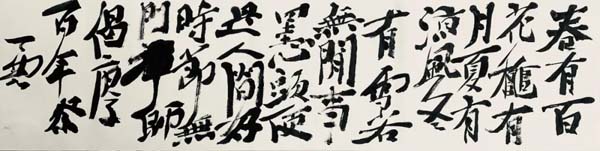 春有百
花穐有
月夏有
涼風冬
有雪若
無閒事
罣心頭便
是人間好
時節無
門禅師
偈
百年祭